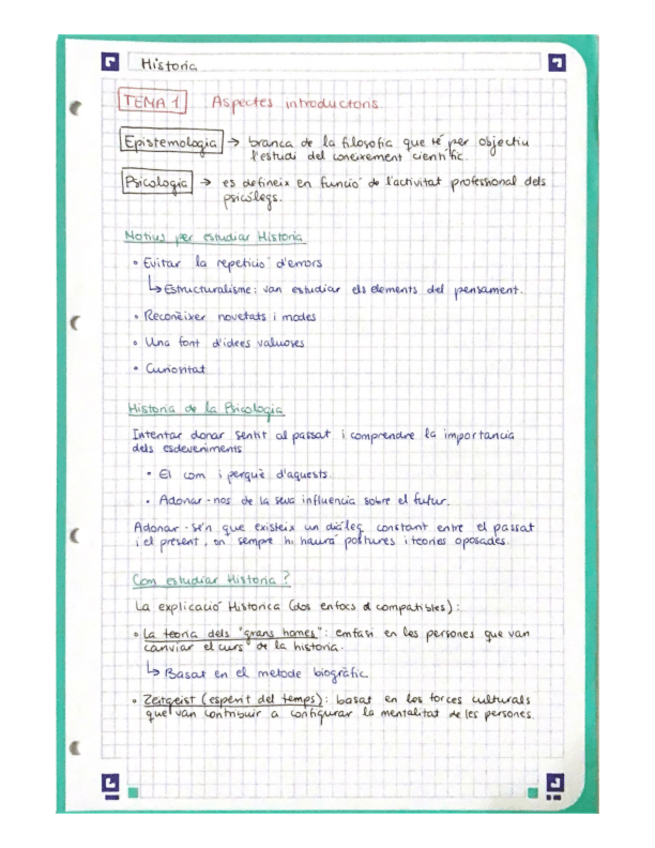 Historia
TEMA 1 Aspectes introductoris
Epistemologia → branca de la filosofia que té per objectiu
l'estudi del coneixement científic.
Psicologia → es defineix en funció de l'activitat professional dels
psicòlegs.
Motius per estudiar Historia
• Evitar la repetició d'errors
↳ Estructuralisme: van estudiar els elements del pensament.
• Reconèixer novetats i modes
• Una font d'idees valuoses
• Curiositat
Historia de la Psicologia
Intentar donar sentit al passat i comprendre la importancia
dels esdeveniments
• El com i perquè d'aquests.
• Adonar-nos de la seva influencia sobre el futur.
Adonar-se'n que existeix un diàleg constant entre el passat
i el present, on sempre hi haurà postures i teories oposades.
Com estudiar Historia?
La explicació Historica (dos enfocs compatibles):
• La teoria dels "grans homes": emfasi en les persones que van
canviar el curs de la historia.
↳ Basat en el metode biogràfic
• Zeitgeist (esperit del temps): basat en les forces culturals
que van contribuir a configurar la mentalitat de les persones.